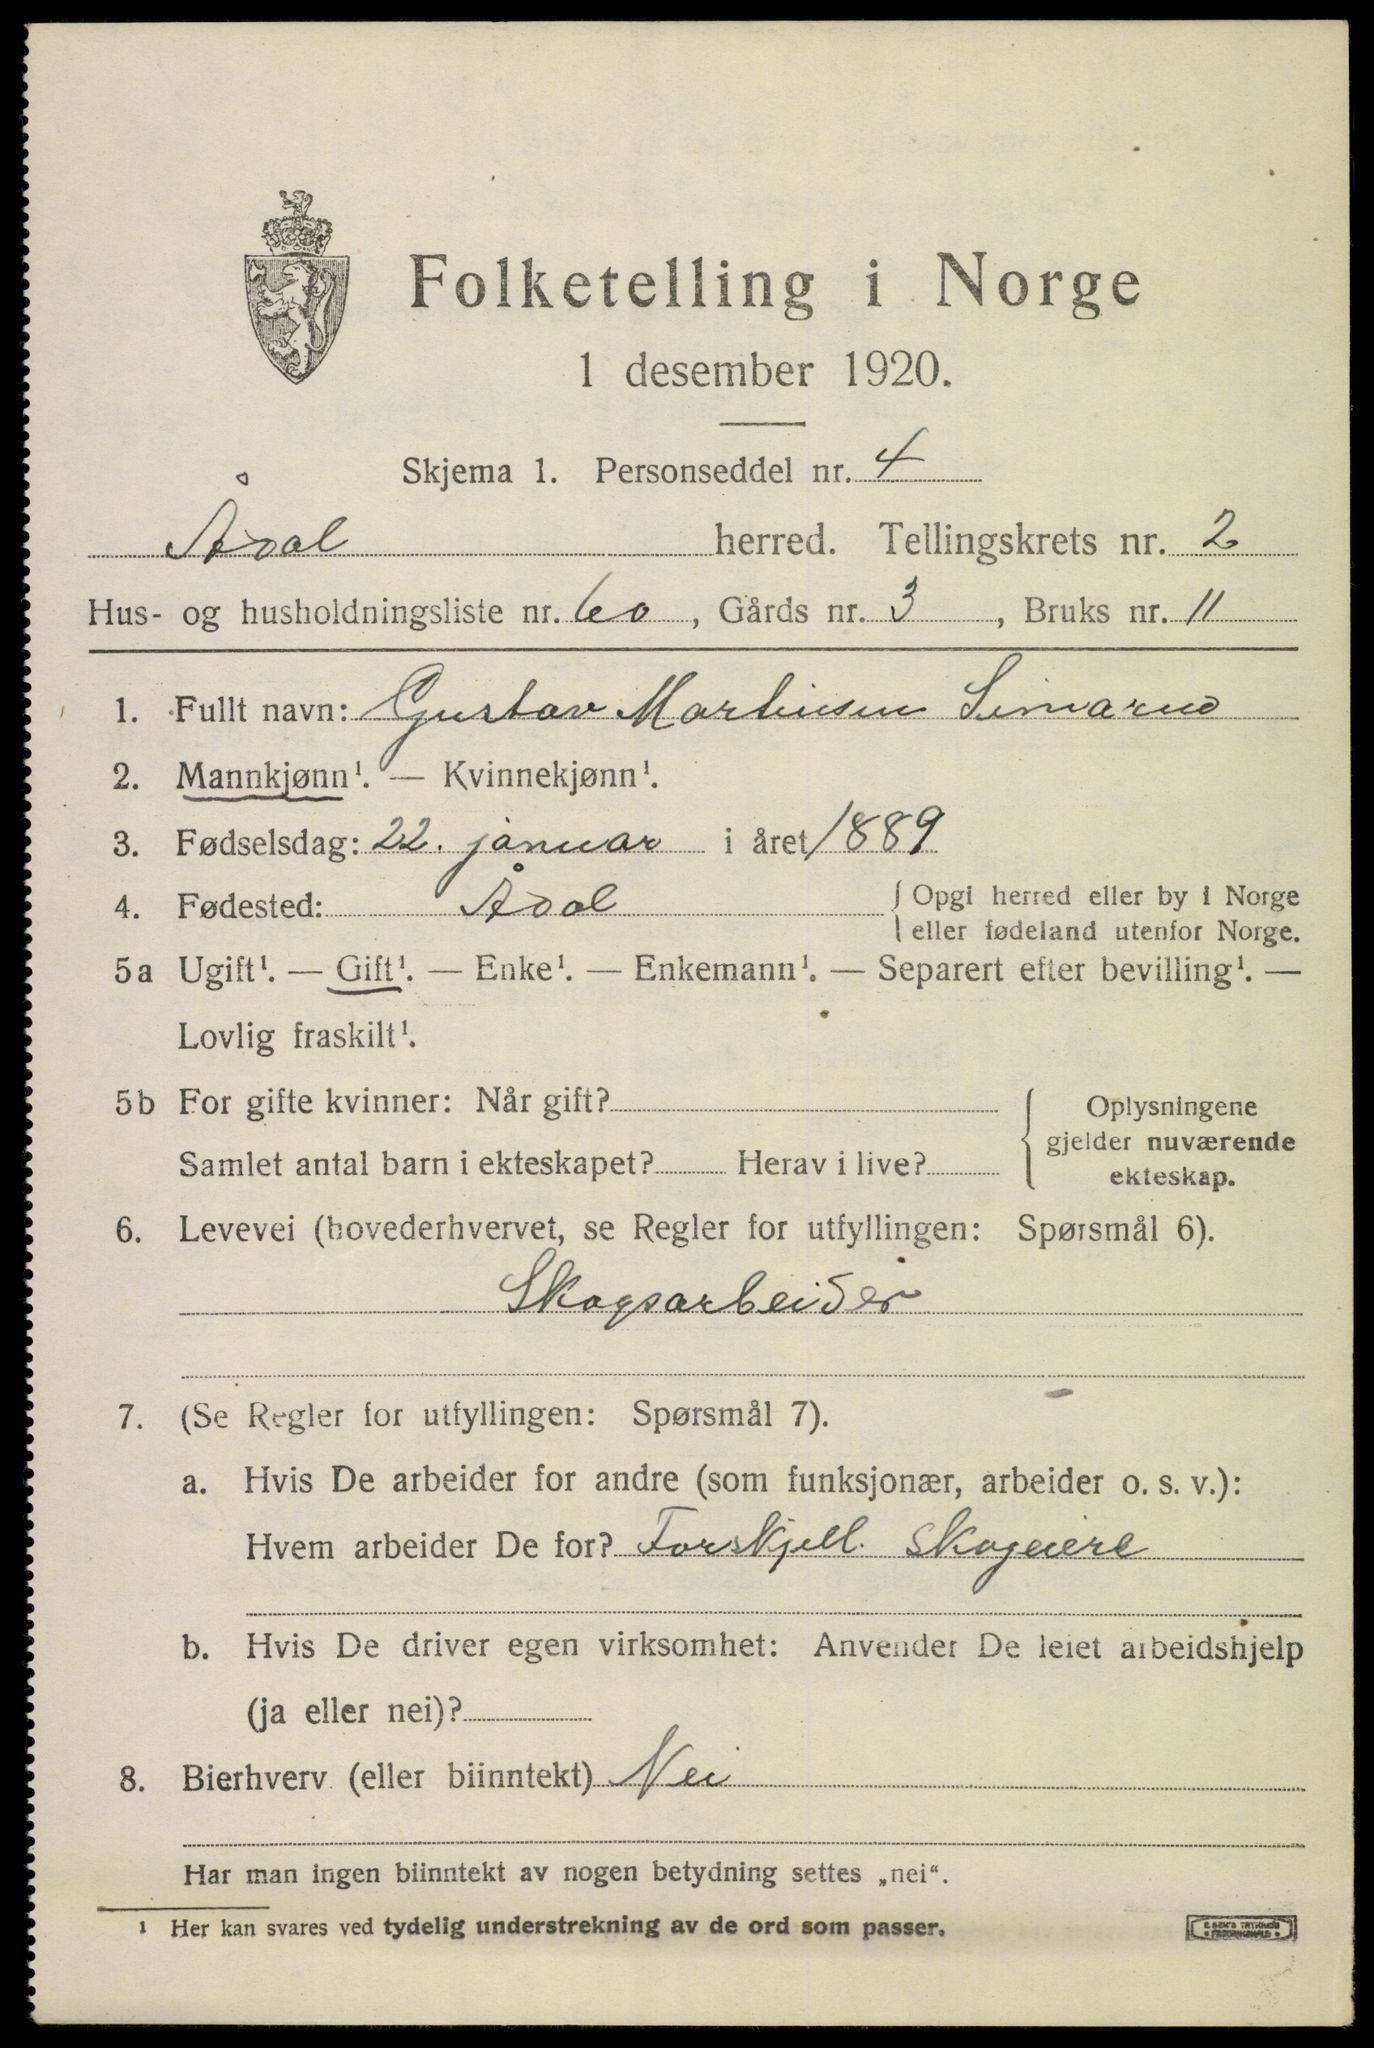 Folketelling i Norge
1 desember 1920.
Skjema 1. Personseddel nr. 4
Ådal herred. Tellingskrets nr. 2
Hus- og husholdningsliste nr. 60, Gårds nr. 3, Bruks nr. 11
1. Fullt navn: Gustav Martinsen
2. Mannkjønn¹. — Kvinnekjønn¹.
3. Fødselsdag: 22. januar i året 1889
4. Fødested: Ådal { Opgi herred eller by i Norge
eller fødeland utenfor Norge.
5a Ugift¹. — Gift¹. — Enke¹. — Enkemann¹. — Separert efter bevilling¹. —
Lovlig fraskilt¹.
5b For gifte kvinner: Når gift?
Samlet antal barn i ekteskapet? Herav i live?
{ Oplysningene
gjelder nuværende
ekteskap.
6. Levevei (hovederhvervet, se Regler for utfyllingen: Spørsmål 6).
Skogsarbeider
7. (Se Regler for utfyllingen: Spørsmål 7).
a. Hvis De arbeider for andre (som funksjonær, arbeider o. s. v.):
Hvem arbeider De for? Forskjell. skogeiere
b. Hvis De driver egen virksomhet: Anvender De leiet arbeidshjelp
(ja eller nei)?
8. Bierhverv (eller biinntekt) Nei
Har man ingen biinntekt av nogen betydning settes „nei“.
¹ Her kan svares ved tydelig understrekning av de ord som passer.